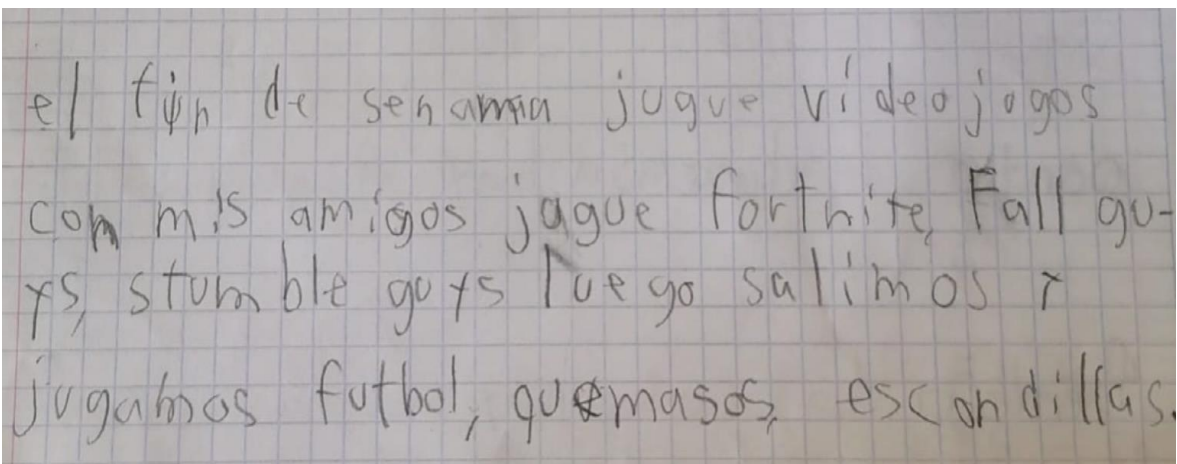 el fin de senamna jugue videojogos
con mis amigos jugue fortnite, Fall gu-
ys, stumble guys luego salimos y
jugamos futbol, quemasos, escondillas.